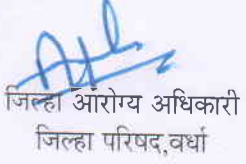 जिल्हा आरोग्य अधिकारी
जिल्हा परिषद,वर्धा